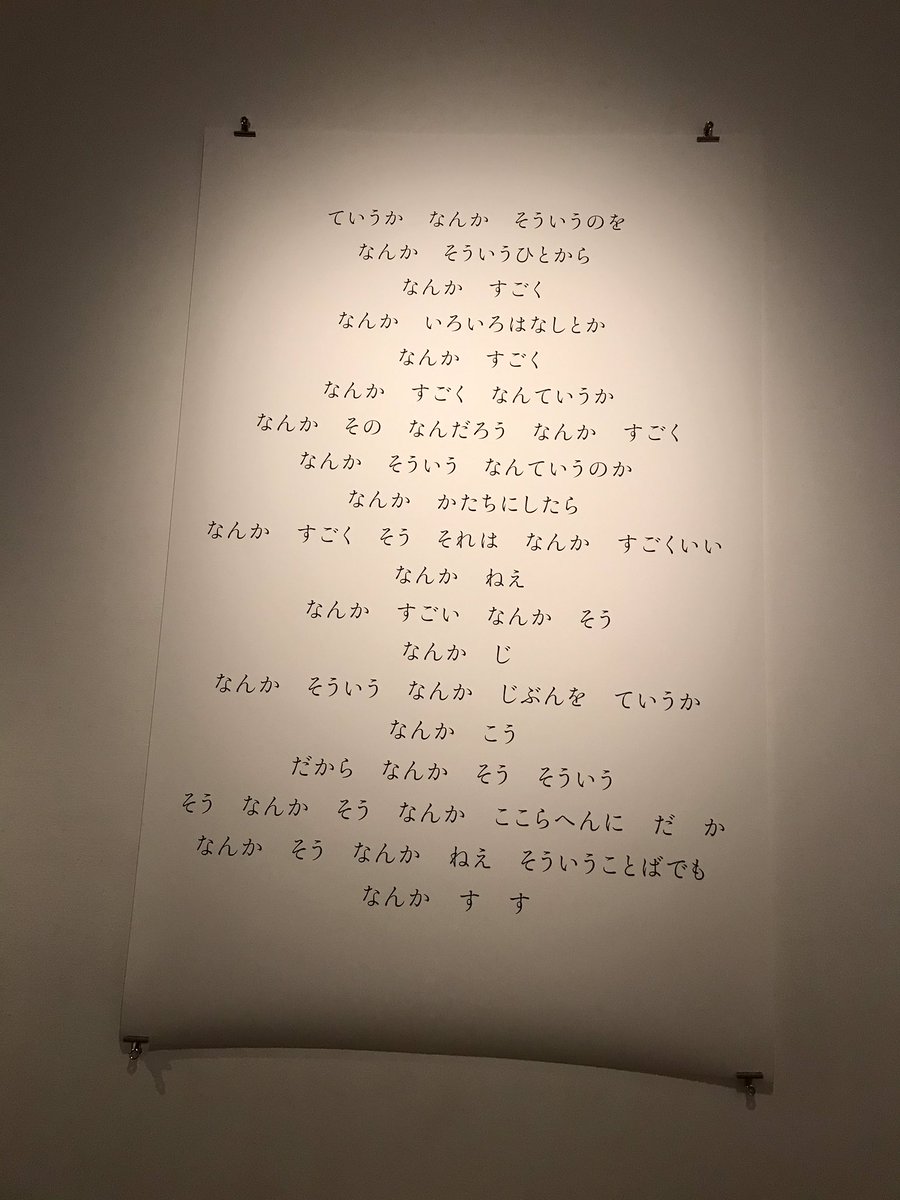 ていうか　なんか　そういうのを
なんか　そういうひとから
なんか　すごく
なんか　いろいろはなしとか
なんか　すごく
なんか　すごく　なんていうか
なんか　その　なんだろう　なんか　すごく
なんか　そういう　なんていうのか
なんか　かたちにしたら
なんか　すごく　そう　それは　なんか　すごくいい
なんか　ねえ
なんか　すごい　なんか　そう
なんか　じ
なんか　そういう　なんか　じぶんを　ていうか
なんか　こう
だから　なんか　そう　そういう
そう　なんか　そう　なんか　ここらへんに　だ　か
なんか　そう　なんか　ねえ　そういうことばでも
なんか　す　す